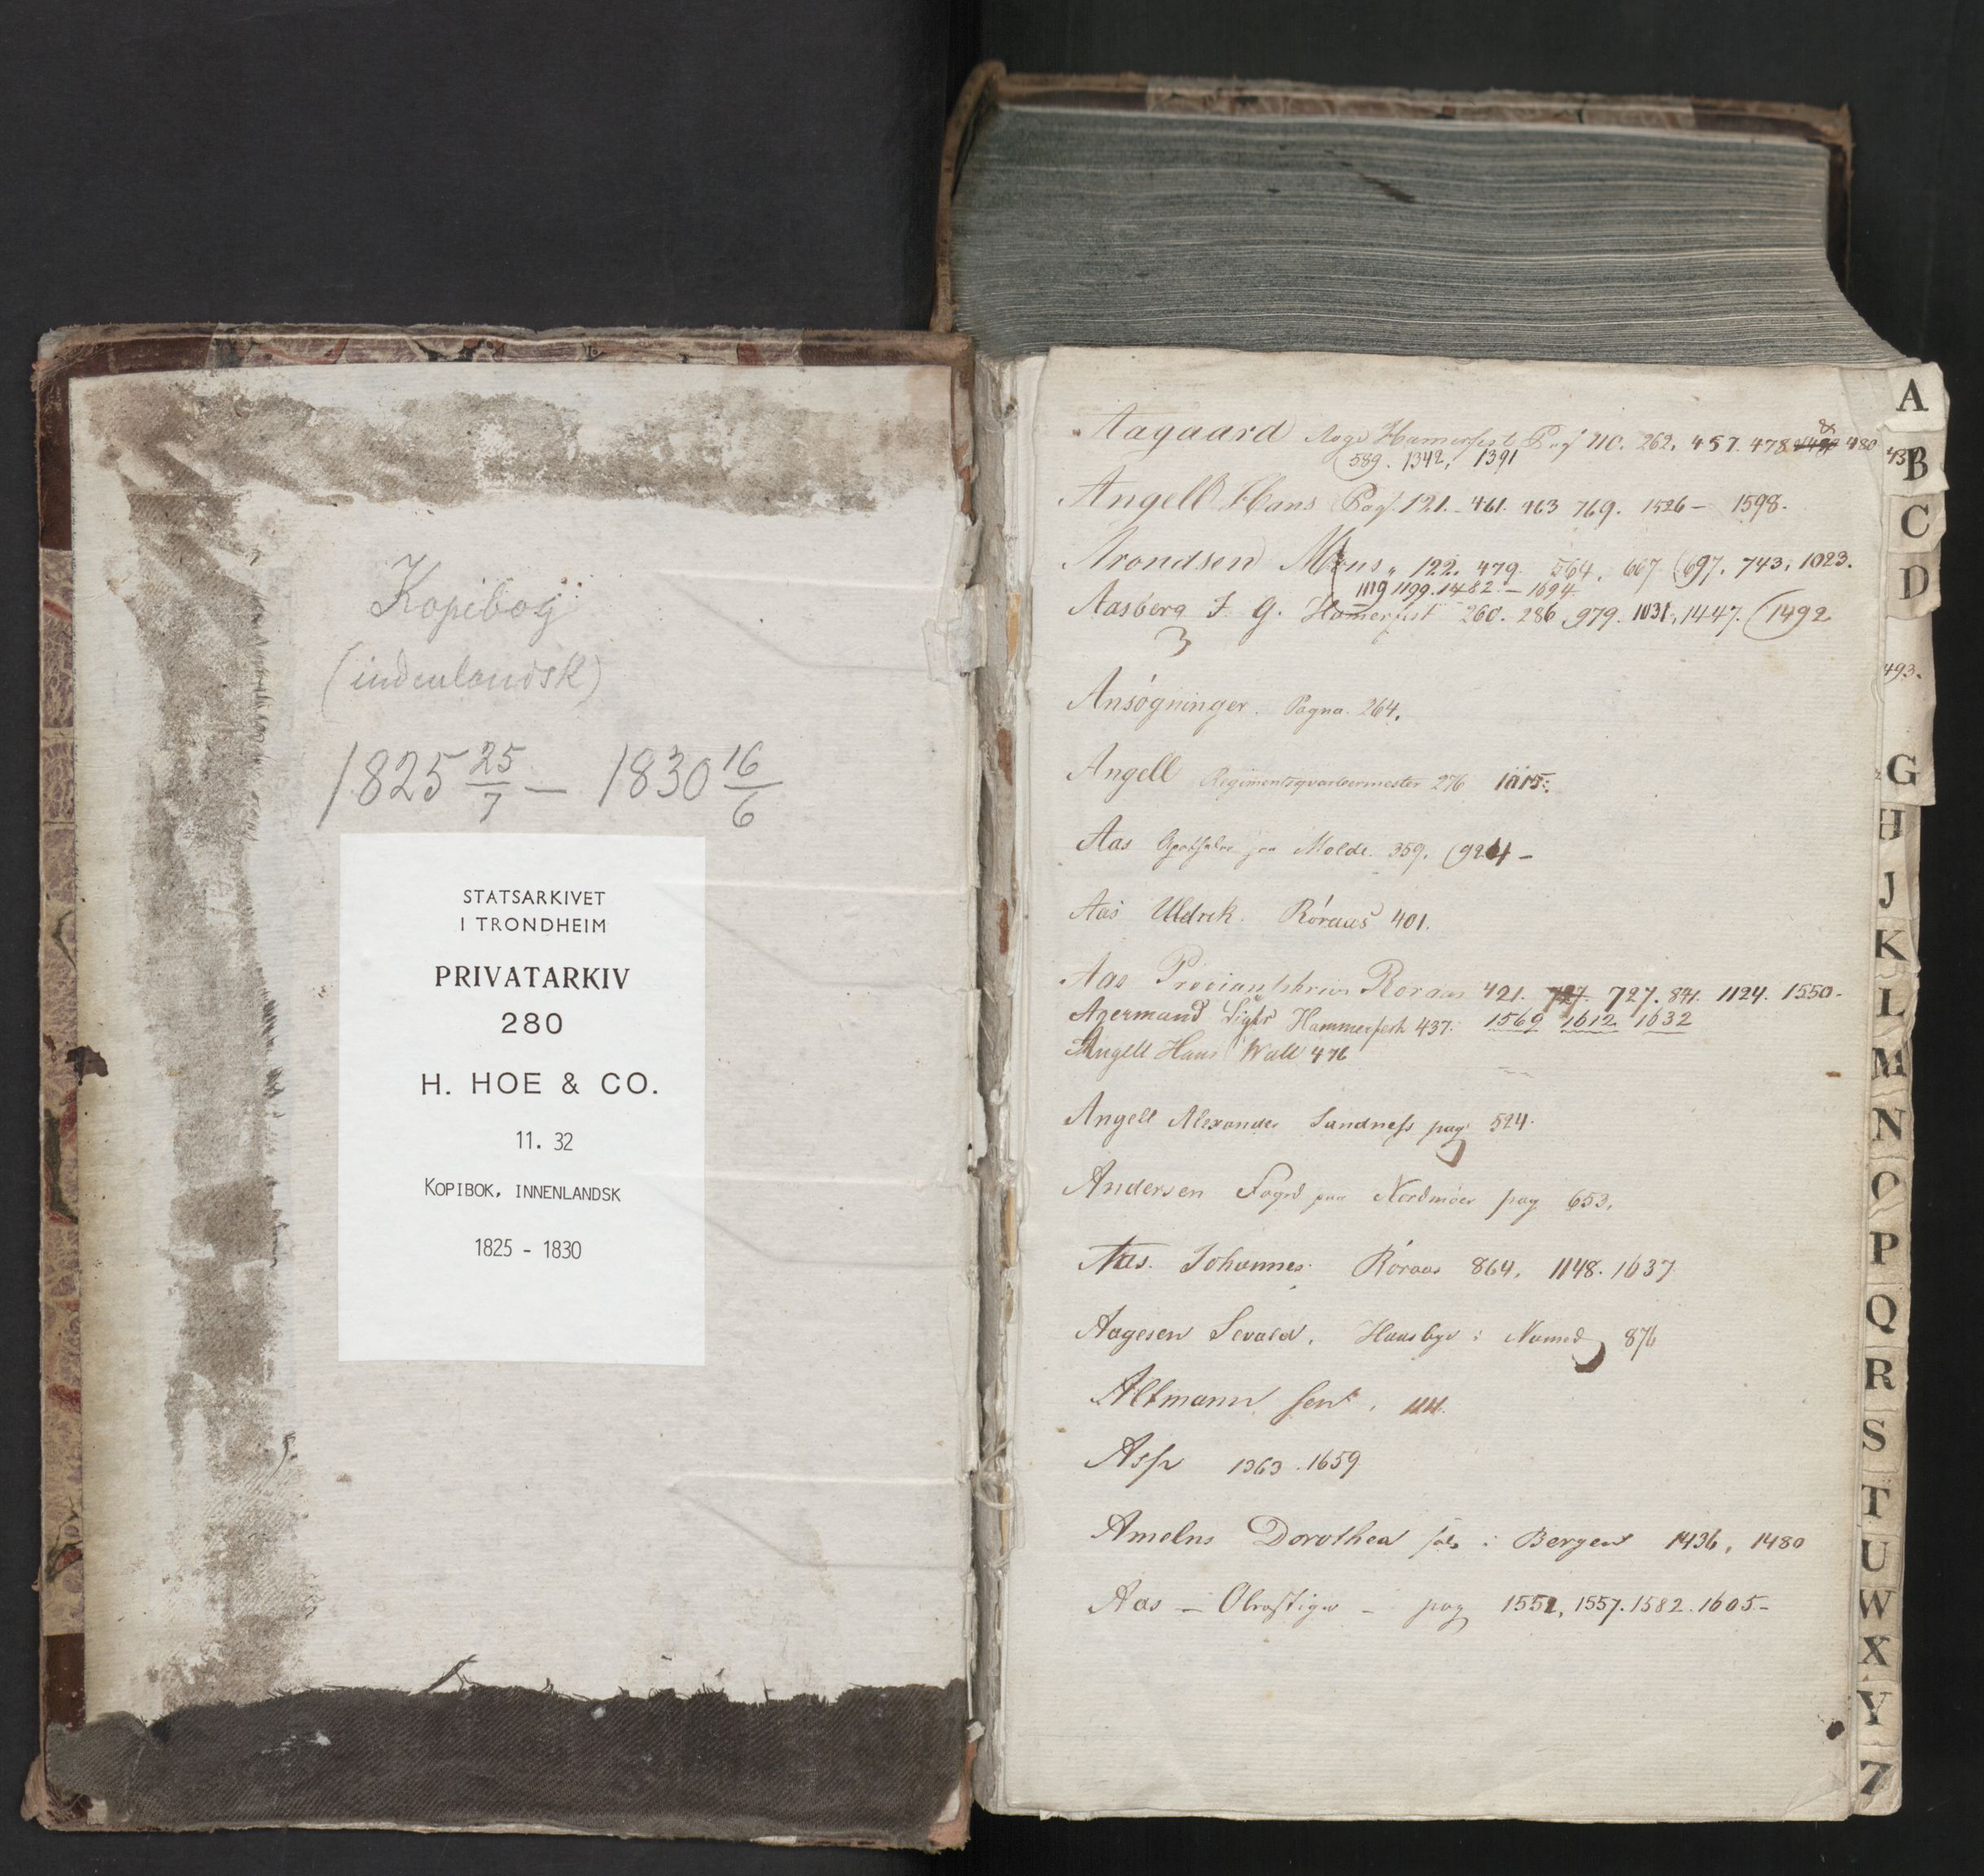 Kopibog
(indenlandsk)
1825 25/7 – 1830 16/6
STATSARKIVET
I TRONDHEIM
PRIVATARKIV
280
H. HOE & CO.
11. 32
KOPIBOK, INNENLANDSK
1825 - 1830
Aagaard Aage Hamerfest Pag 262. 457. 478 480
589. 1342, 1391
Angell Hans Pag. 121. 461. 463 769. 1526 – 1598.
Arondsen Mons „ 122. 479. 564. 667 697. 743. 1023.
1119 1199. 1482 – 1694
Aasberg J. G. Hamerfest 260. 286 979. 1031, 1447. (1492
493.
Ansøgninger. Pagna. 264.
Angell Regimentsqvarteermester 276 1015.
Aas Molde. 359. 924 –
Aas Uldrik. Røraas 401.
Aas Proviantskriver Roraas 421. 727. 727. 841. 1124. 1550 –
Agermand Hammerfest 437. 1569 1612 1632
Angell Hans Wall 476
Angell Alexander Sandness pag 524.
Andersen Foged paa Nordmøer pag 653.
Aas. Johannes. Røraas 864. 1148. 1637
Aagesen Sevald. Huusbye i Namd 876
Altmann Sen.
Asp 1363. 1659
Amelns Dorothea i Bergen 1436, 1480
Aas – – pag 1552, 1557. 1582. 1605 –
A
B
C
D
G
H
J
K
L
M
N
O
P
Q
R
S
T
U
W
X
Y
Z